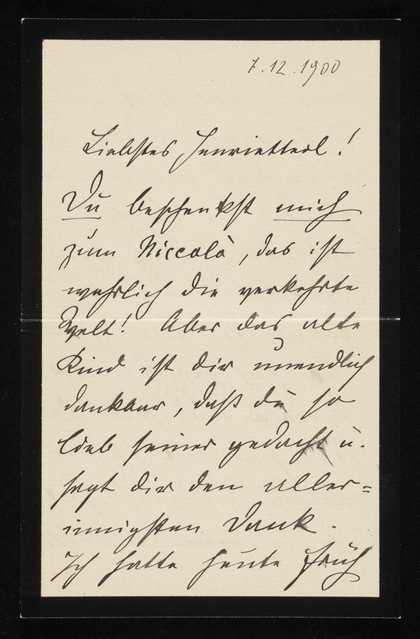 7.12.1900
Liebstes Henrietterl!
Du beschenkst mich
zum Niccolò, das ist
wahrlich die verkehrte
Welt! Aber das alte
Kind ist dir unendlich
dankbar, daß du so
lieb seiner gedacht u.
sagt dir den aller=
innigsten Dank.
Ich hatte heute früh